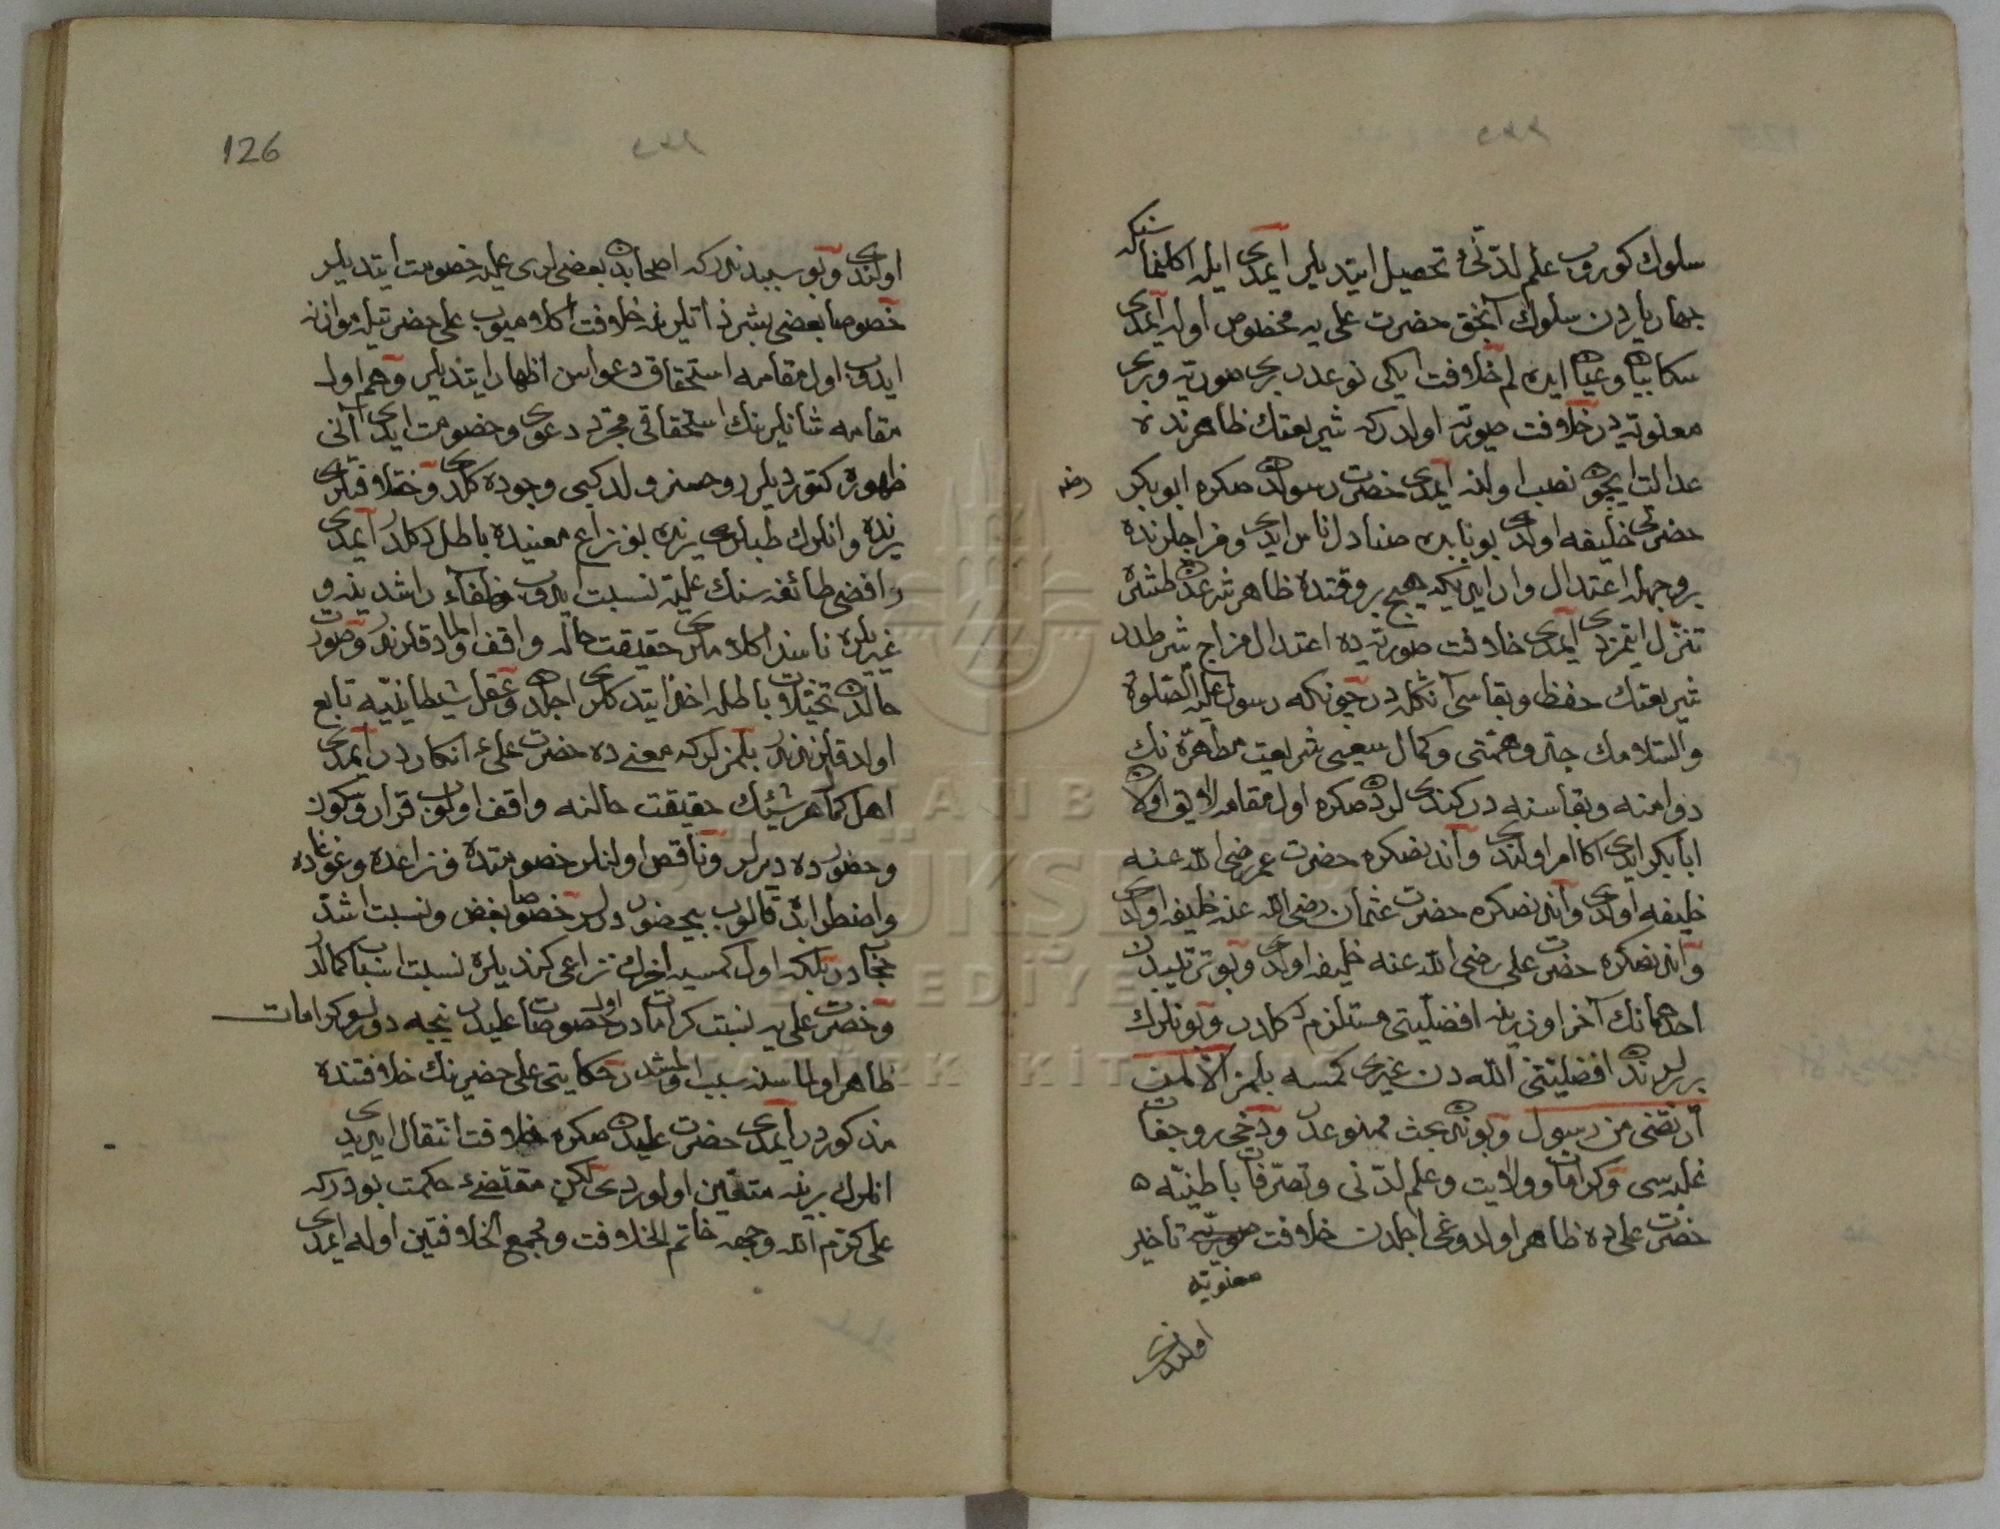 سلوك كوروب علم لدنّى تحصيل ايتديلر ايمدى ايله اكلنماسنكه
جهار ياردن سلوك آنجق حضرت على يه مخصوص اوله ايمدى
سكا بيان وعيان ايده لم خلافت ايكى نوعدر برى صوريه وبرى
معنويه در خلافت صوريه اولدركه شريعتك ظاهرنده
عدالت ايچون نصب اولنه ايمدى حضرت رسولدن صكره ابو بكر رضه
حضرتى خليفه اولدى
بر وجهله اعتدال وار ايديكه هيچ بر وقتده ظاهر شرعدن طشره
تنزل ايتمزدى ايمدى خلافت صوريه ده اعتدال مزاج شرطدر
شريعتك حفظ وبقاسى آنكله در چونكه رسول عليه الصلوة
والسلامك جلّ وهمتى وكمال سعيى شريعت مطهره نك
دوامنه وبقاسنه در كندى لردن صكره اول مقامه لايق اولان
ابا بكر ايدى اكا امر اولندى وآندنصكره حضرت عمر رضى الله عنه
خليفه اولدى وآندنصكره حضرت عثمان رضى الله عنه خليفه اولدى
وآندنصكره حضرت على رضى الله عنه خليفه اولدى وبو ترتيبدن
احدهمانك آخر اوزرينه افضليتى مستلزم دكلدر وبونلرك
برلرندن افضليتنى الله دن غيرى كمسه بلمز الا لمن
ارتضى من رسول وبوندن بحث ممنوعدر ودخى روحفات
غلبه سى وكرامات وولايت وعلم لدنى وتصرفات باطنيه
حضرت على ده ظاهر اولدوغى اجلدن خلافت صوريه تاخير
معنويه
اولندى
126
اولندى وبو سببدندركه اصحابدن بعضى لرى عليله خصومت ايتديلر
خصوصا بعضى بشر ذاتلرينه خلافت اكلاميوب على حضرتيله موازنه
ايدوب اول مقامه استحقاق دعواسن اظهار ايتديلر وهم اول
مقامه شانلرينك استحقاقى مجرد دعوى وخصومت ايدى آنى
ظهوره كتورديلر روحسز ولد كبى وجوده كلدى وخلافتلرى
يرنده وانلرك طلبلرى يرنده بو نزاع معنيده باطل دكلدر ايمدى
رافضى طائفه سنك عليه نسبت ايدوب خلفاء راشدينه و
غيريلره ناسزا كلاملرى حقيقت حاله واقف اولمادقلرندندر وصورت
حالدن تخيلات باطله اخذ ايتدكلرى اجلدن وعقل شيطانيه تابع
اولدقلرندندر بلمزلركه معنى ده حضرت على ع انكاردر ايمدى
اهل كمال هر شيئك حقيقت حالنه واقف اولوب قرار وسكون
وحضورده ديرلر وناقص اولنلر خصومتده ونزاعده وغوغاده
واضطرابده قالوب بيحضور درلر خصوصا بغض ونسبت اشد
حجابدر بلكه اول كمسيه آخرك نزاعى كنديلره نسبت اسباب كمالدر
وحضرت على يه نسبت كراماتدر اول خصوصات عليدن نيجه دورلو كرامات
ظاهر اولماسنه سبب اولمشدر حكايتى على حضرتينك خلافتنده
مذكوردر ايمدى حضرت عليدن صكره خلافت انتقال ايدردى
انلرك بريند متعين اولوردى لكن مقتضئ حكمت بودركه
على كرم الله وجهه خاتم الخلافت ومجمع الخلافتين اوله ايمدى